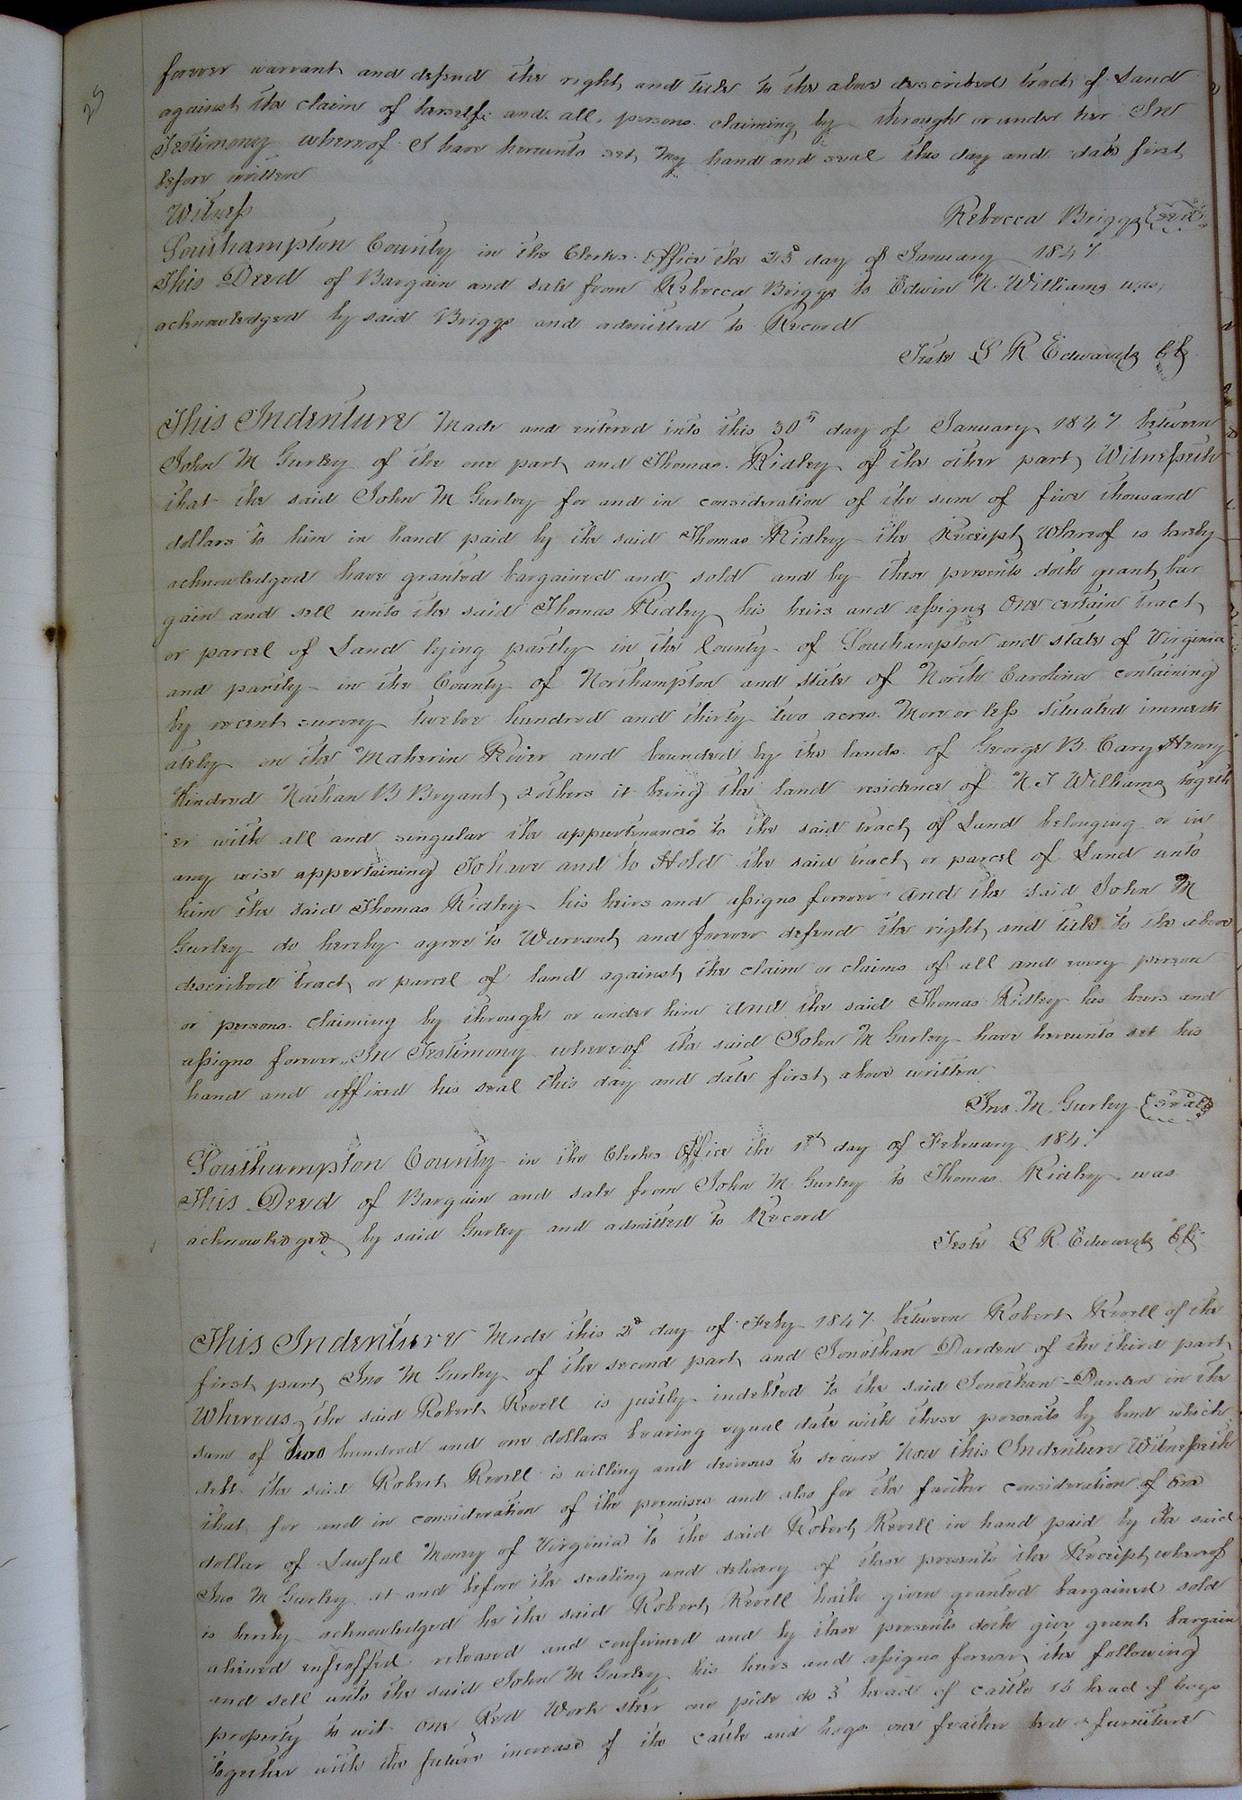 forever warrant and defend the right and title to the above described tract of Land
against the claim of herself and all persons claiming by through or under her In
Testimony whereof I have hereunto set my hand and seal this day and date first
before written
Witness
Rebecca Briggs {seal}
Southampton County in the Clerks Office the 25 day of January 1847
This Deed of Bargain and sale from Rebecca Briggs to Edwin N. Williams was
acknowledged by said Briggs and admitted to Record
Teste L R Edwards Clk
This Indenture Made and entered into this 30th day of January 1847 between
John M Gurley of the one part and Thomas Ridley of the other part Witnesseth
that the said John M Gurley for and in consideration of the sum of five thousand
dollars to him in hand paid by the said Thomas Ridley the Receipt Whereof is hereby
acknowledged have granted bargained and sold and by these presents doth grant bar
gain and sell unto the said Thomas Ridley his heirs and assigns One certain tract
or parcel of Land lying partly in the County of Southampton and state of Virginia
and partly in the County of Northampton and state of North Carolina containing
by recent survey twelve hundred and thirty two acres More or less situated immedi
ately on the Maherin River and bounded by the lands of George B. Cary Henry
Kindred Nathan B Bryant & others it being the land residence of N. T Williams togeth
er with all and singular the appurtenances to the said tract of Land belonging or in
any wise appertaining To have and to Hold the said tract or parcel of Land unto
him the said Thomas Ridley his heirs and assigns forever And the said John M
Gurley do hereby agree to Warrant and forever defend the right and title to the above
described tract or parcel of land against the claim or claims of all and every person
or persons claiming by through or under him And the said Thomas Ridley his heirs and
assigns forever In Testimony whereof the said John M Gurley have hereunto set his
hand and affixed his seal this day and date first above written
Jno. M. Gurley {seal}
Southampton County in the Clerks Office the 1st day of February 1847
This Deed of Bargain and sale from John M Gurley to Thomas Ridley was
acknowledged by said Gurley and admitted to Record
Teste L R Edwards Clk
This Indenture Made this 2d day of Feby 1847 between Robert Revell of the
first part Jno M Gurley of the second part and Jonathan Darden of the third part
Whereas the said Robert Revell is justly indebted to the said Jonathan Darden in the
sum of two hundred and one dollars bearing equal date with these presents by bond which
debt the said Robert Revell is willing and desirous to secure Now this Indenture Witnesseth
that for and in consideration of the premises and also for the further consideration of One
dollar of Lawful Money of Virginia to the said Robert Revell in hand paid by the said
Jno M Gurley at and before the sealing and delivery of these presents the Receipt whereof
is hereby acknowledged he the said Robert Revell hath given granted bargained sold
aliened enfeoffed released and confirmed and by these presents doth give grant bargain
and sell unto the said John M Gurley his heirs and assigns forever the following
property to wit One Red Work steer one pide do 3 head of cattle 16 head of hogs
together with the future increase of the cattle and hogs one feather bed & furniture